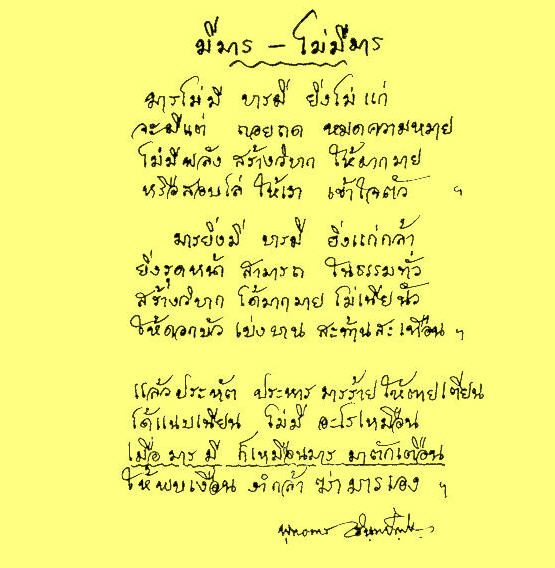 มีมาร – ไม่มีมาร
มารไม่มี บารมี ยิ่งไม่แก่
จะมีแต่ ถอยถด หมดความหมาย
ไม่มีพลัง สร้างวิบาก ให้มากมาย
หรือสอบไล่ ให้เรา เข้าใจตัว ฯ
มารยิ่งมี บารมี ยิ่งแก่กล้า
ยิ่งรุดหน้า สามารถ ในธรรมทั่ว
สร้างวิบาก ได้มากมาย ไม่เพียงนั้ว
ให้ดอกบัว เบ่งบาน สะท้านสะเทือน ฯ
แล้วประหัต ประหาร มารร้ายให้ตายเตียน
ได้แนบเนียน ไม่มี อะไรเหมือน
เมื่อ มาร มี ก็เหมือนมาร มาตักเตือน
ให้พบเงื่อน งำกล้า ฆ่ามารเอง ฯ
พุทธทาส อินทปัญโญ